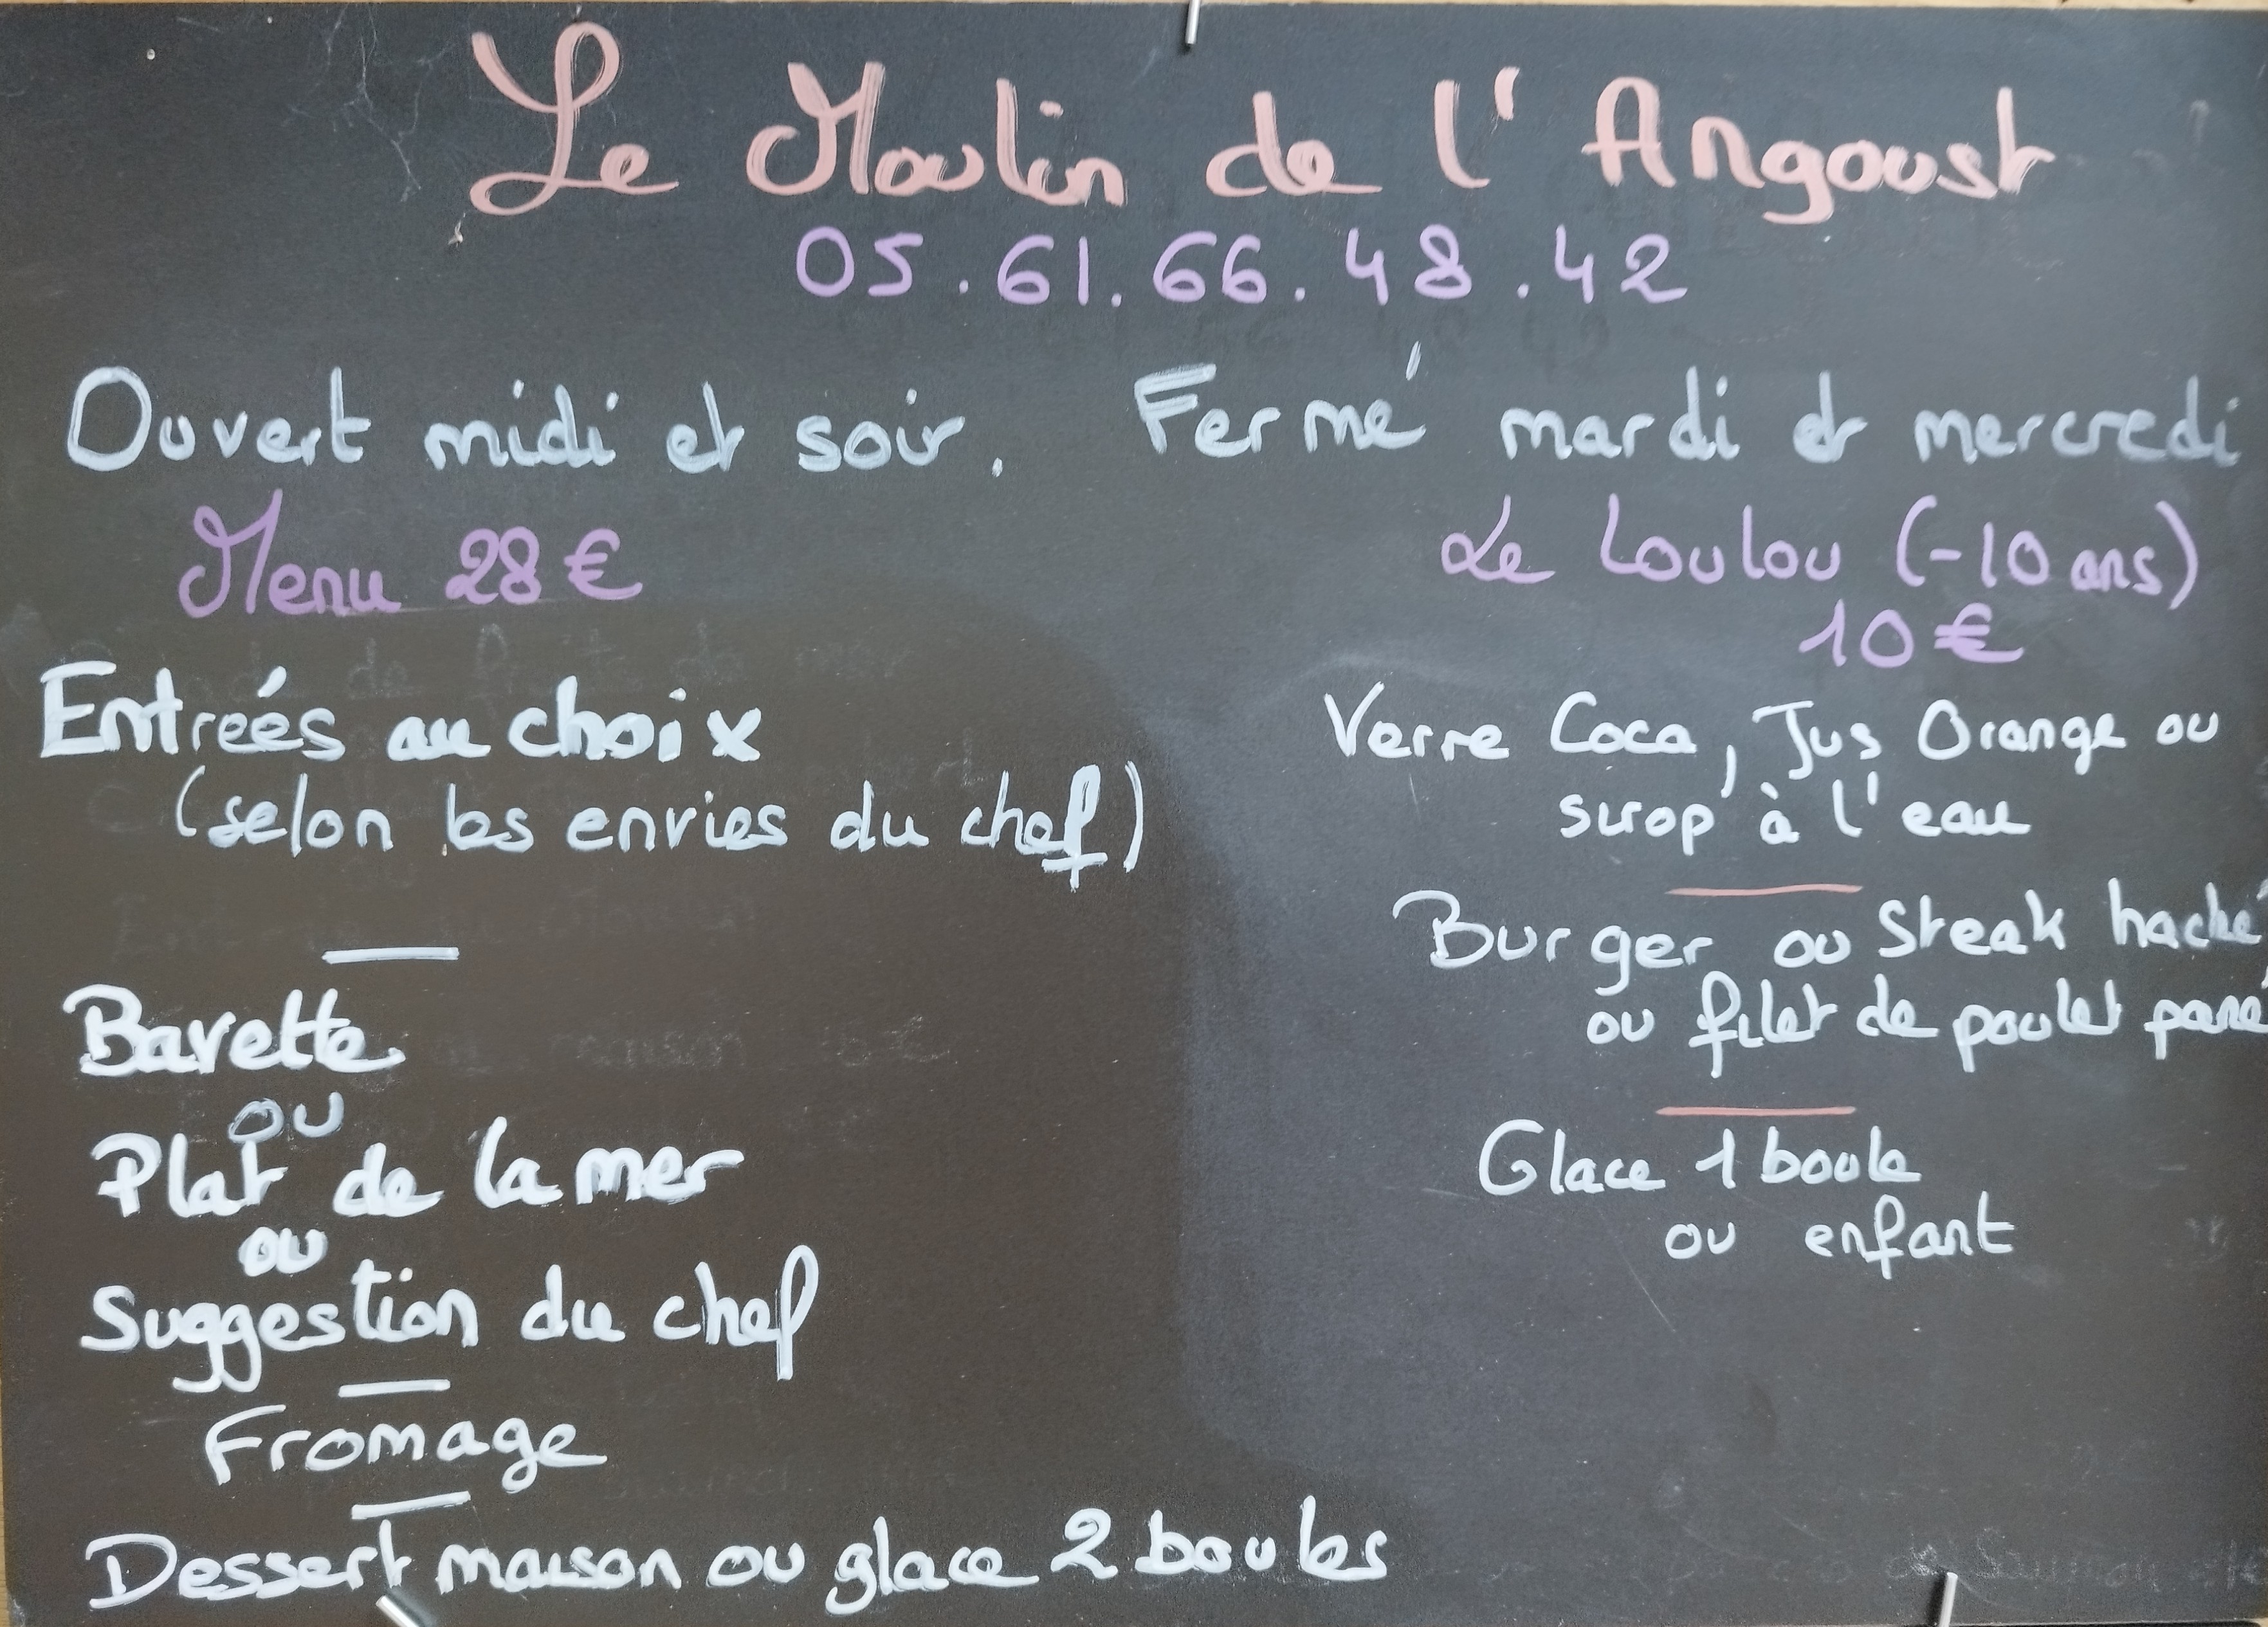 Le Moulin de l'Angoust
05.61.66.48.42
Ouvert midi et soir. Fermé mardi et mercredi
Menu 28€
Entreés au choix
(selon les envies du chef)
Bavette
ou
Plat de la mer
ou
Suggestion du chef
Fromage
Dessert maison ou glace 2 boules
Le Loulou (-10 ans)
10€
Verre Coca, Jus Orange ou
sirop à l'eau
Burger ou Steak haché
ou filet de poulet pané
Glace 1 boule
ou enfant